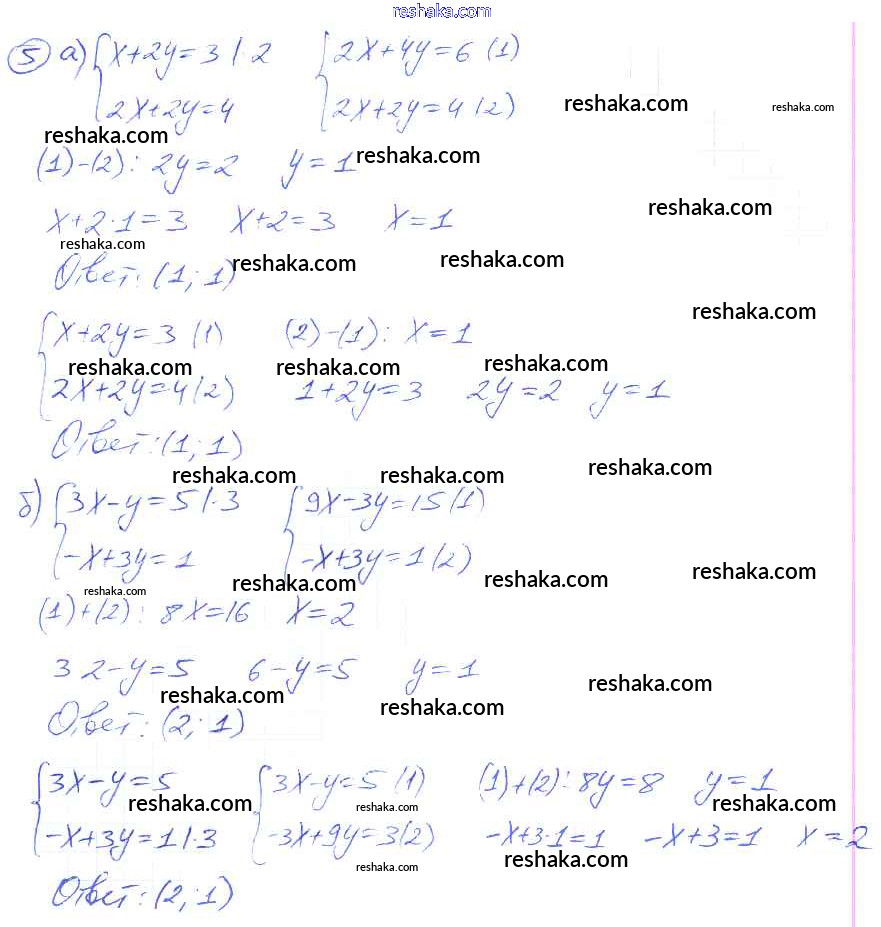 reshaka.com
5 а) { x+2y=3 |·2 { 2x+4y=6 (1)
2x+2y=4 2x+2y=4 (2)
reshaka.com reshaka.com reshaka.com
(1)-(2): 2y=2 y=1 reshaka.com
x+2·1=3 x+2=3 x=1 reshaka.com
reshaka.com
Ответ: (1; 1) reshaka.com reshaka.com
reshaka.com
{ x+2y=3 (1) (2)-(1): x=1
reshaka.com reshaka.com reshaka.com
2x+2y=4(2) 1+2y=3 2y=2 y=1
Ответ: (1; 1)
reshaka.com reshaka.com reshaka.com
б) { 3x-y=5 |·3 { 9x-3y=15 (1)
-x+3y=1 -x+3y=1 (2)
reshaka.com reshaka.com reshaka.com reshaka.com
(1)+(2): 8x=16 x=2
3 2-y=5 6-y=5 y=1
reshaka.com reshaka.com reshaka.com
Ответ: (2; 1)
{ 3x-y=5 { 3x-y=5 (1) (1)+(2): 8y=8 y=1
reshaka.com reshaka.com reshaka.com
-x+3y=1 |·3 -3x+9y=3(2) -x+3·1=1 -x+3=1 x=2
reshaka.com reshaka.com
Ответ: (2; 1)